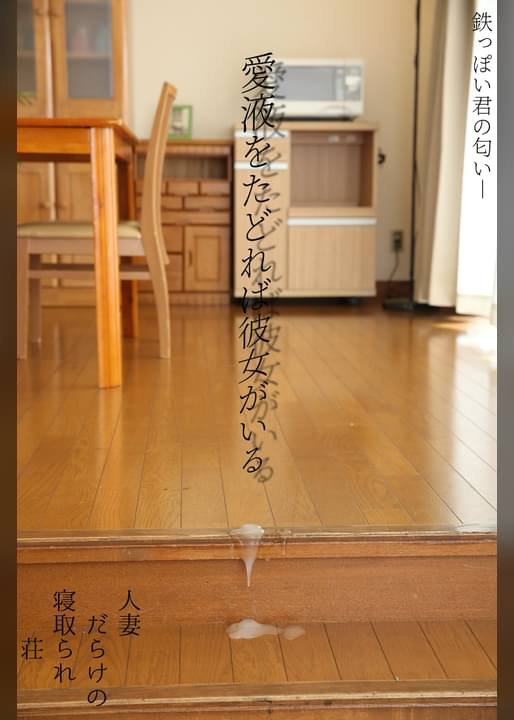 鉄っぽい君の匂い―
愛液をたどれば彼女がいる
人妻
だらけの
寝取られ
荘